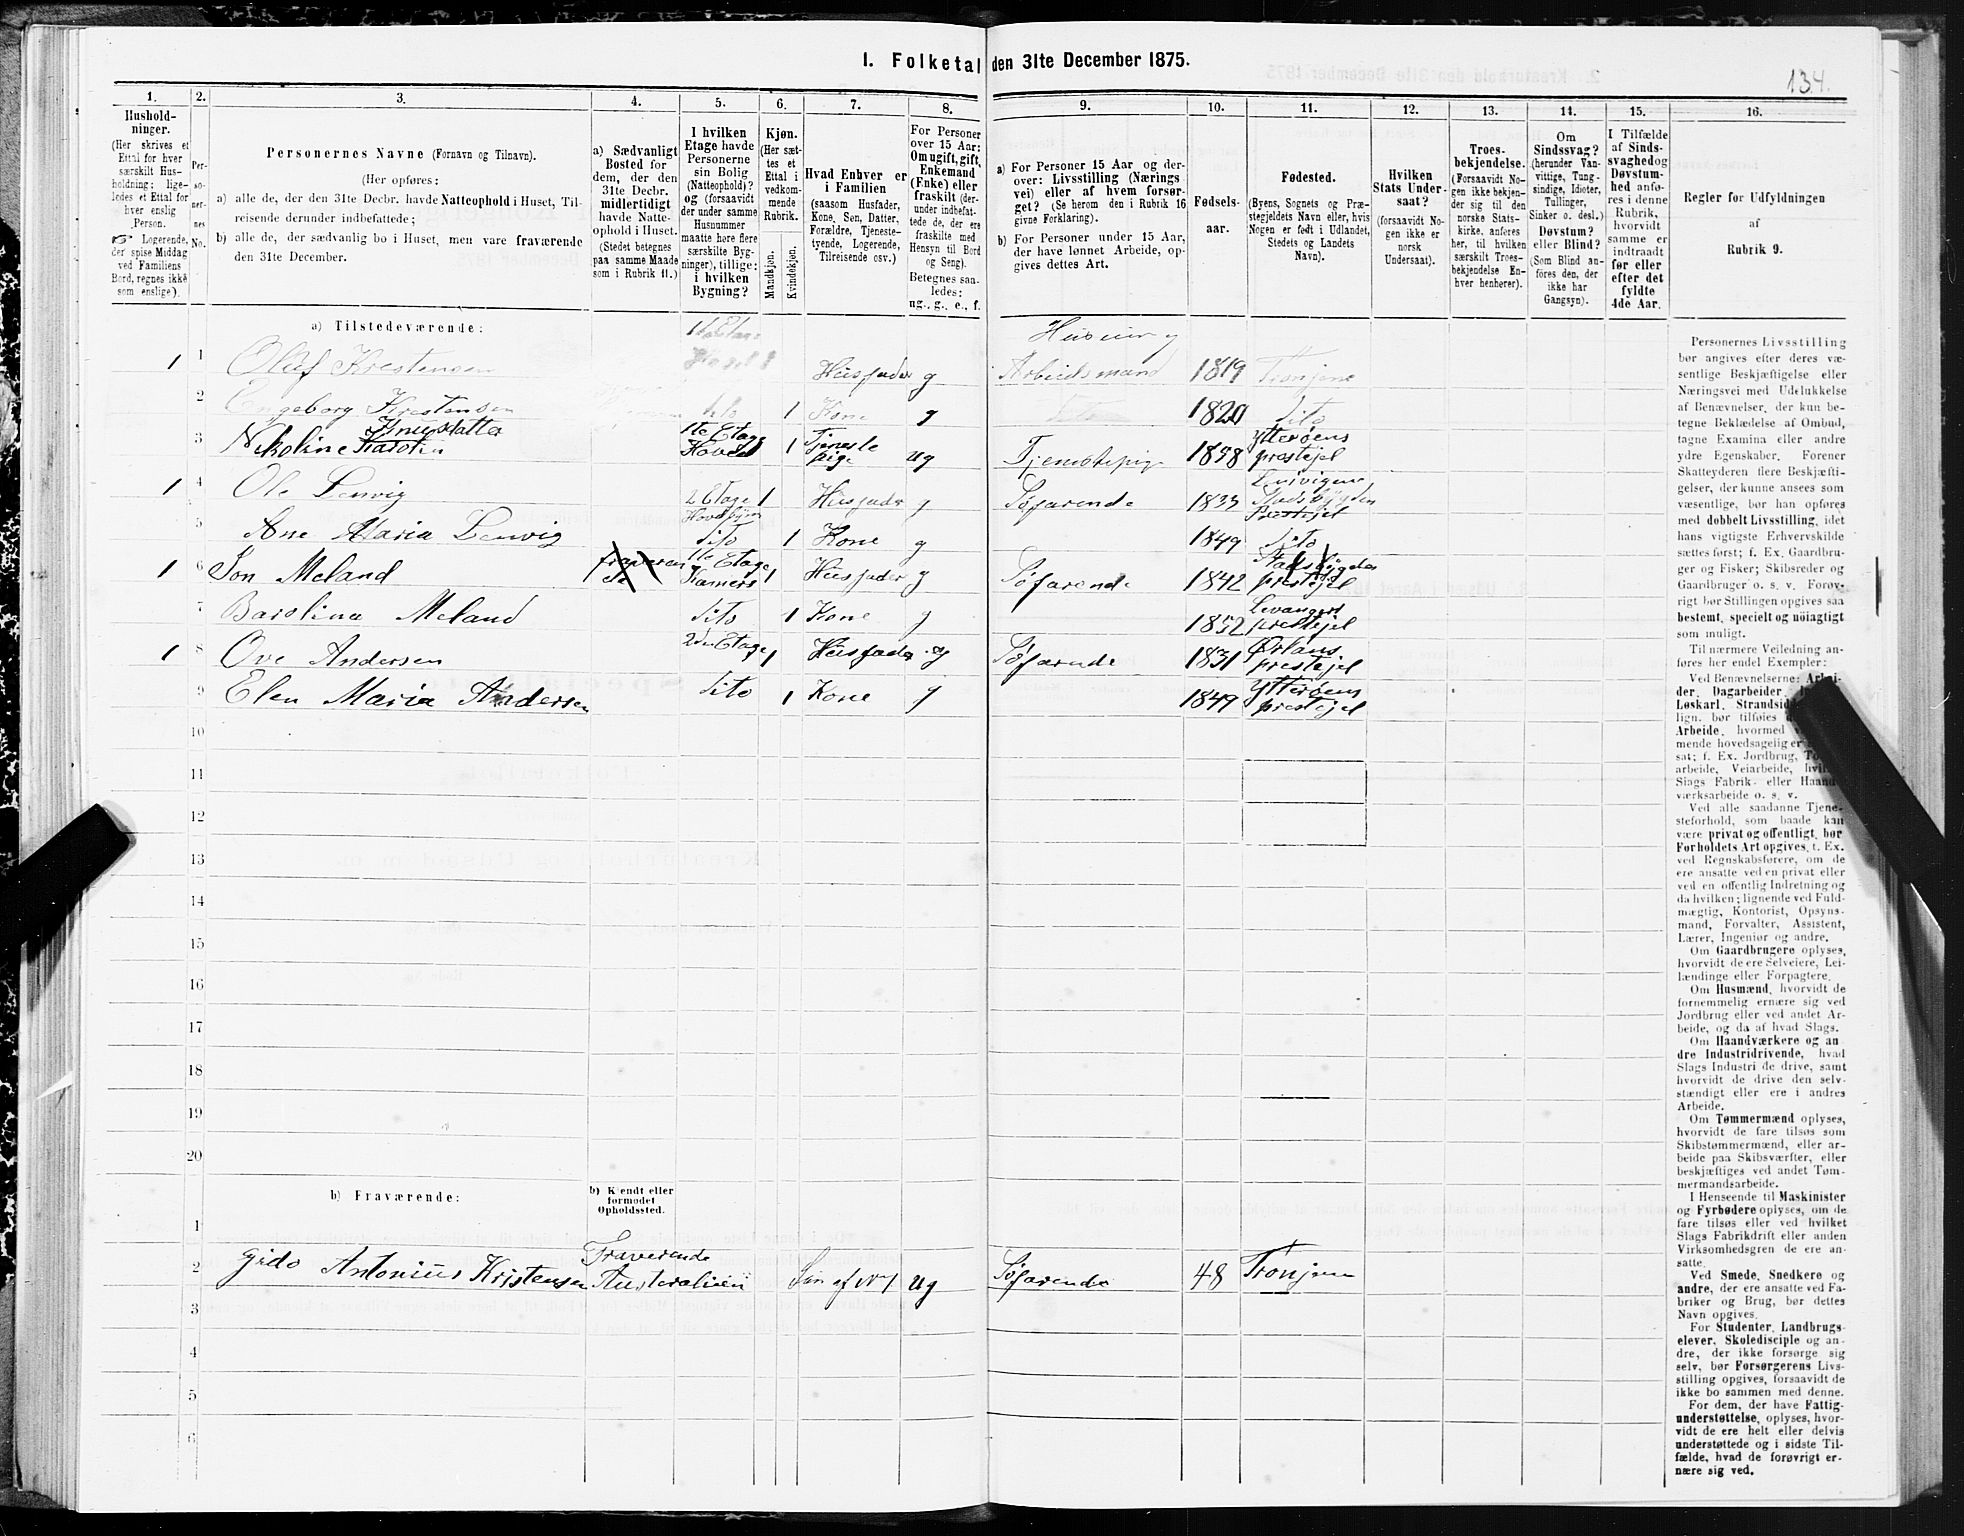 1. Folketal den 31te December 1875.
134.
1. 2. 3. 4. 5. 6. 7. 8. 9. 10. 11. 12. 13. 14. 15. 16.
Husholdninger.
(Her skrives et Ettal for hver særskilt Husholdning; ligeledes et Ettal for hver enslig Person.
☞ Logerende, der spise Middag ved Familiens Bord, regnes ikke som enslige).
Personernes No.
Personernes Navne (Fornavn og Tilnavn).
(Her opføres:
a) alle de, der den 31te Decbr. havde Natteophold i Huset, Tilreisende derunder indbefattede;
b) alle de, der sædvanlig bo i Huset, men vare fraværende den 31te December.
a) Sædvanligt Bosted for dem, der den 31te Decbr. midlertidigt havde Natteophold i Huset.
(Stedet betegnes paa samme Maade som i Rubrik 11.)
I hvilken Etage havde Personerne sin Bolig (Natteophold)? og (forsaavidt der under samme Husnummer maatte høre flere særskilte Bygninger), tillige: i hvilken Bygning?
Kjøn.
(Her sættes et Ettal i vedkommende Rubrik.
Mandkjøn.
Kvindekjøn.
Hvad Enhver er i Familien
(saasom Husfader, Kone, Søn, Datter, Forældre, Tjenestetyende, Logerende, Tilreisende osv.)
For Personer over 15 Aar: Om ugift, gift, Enkemand (Enke) eller fraskilt (derunder indbefattede de, der ere fraskilte med Hensyn til Bord og Seng).
Betegnes saaledes: ug., g., e., f.
a) For Personer 15 Aar og derover: Livsstilling (Næringsvei) eller af hvem forsørget? (Se herom den i Rubrik 16 givne Forklaring).
b) For Personer under 15 Aar, der have lønnet Arbeide, opgives dettes Art.
Fødselsaar.
Fødested.
(Byens, Sognets og Præstegjeldets Navn eller, hvis Nogen er født i Udlandet, Stedets og Landets Navn).
Hvilken Stats Undersaat?
(forsaavidt Nogen ikke er norsk Undersaat).
Troesbekjendelse.
(Forsaavidt Nogen ikke bekjender sig til den norske Statskirke, anføres her, til hvilken særskilt Troesbekjendelse Enhver henhører).
Om Sindssvag? (herunder Vanvittige, Tungsindige, Idioter, Tullinger, Sinker o. desl.) Døvstum? eller Blind?
(Som Blind anføres den, der ikke har Gangsyn).
I Tilfælde af Sindssvaghed og Døvstumhed anføres i denne Rubrik, hvorvidt samme er indtraadt før eller efter det fyldte 4de Aar.
Regler for Udfyldningen
af
Rubrik 9.
a) Tilstedeværende:
1 1 Olaf Krestensen Husfader g Arbeidsmand 1819 Tronjem
2 Engeborg Krestensen dito 1 Kone g 1820 dito
3 Nikoline Knusdatter 1te Etage 1 Tjeneste pige ug Tjenstepige 1858 Ytterøens prestejel
1 4 Ole Lenvig 2 Etage 1 Husfader g Søfarende 1833 Stadsbygden Prestejel
5 Ane Maria Lenvig dito 1 Kone g 1849 dito
1 6 Jon Meland 1te Etage Kamers 1 Husfader g Søfarende 1842 Stadsbygden prestejel
7 Barolina Meland dito 1 Kone g 1852 Levangers prestejel
1 8 Ove Andersen 2den Etage 1 Husfader g Søfarende 1831 Ørlans prestejel
9 Elen Maria Andersen dito 1 Kone g 1849 Ytterøens prestejel
10
11
12
13
14
15
16
17
18
19
20
b) Fraværende:
b) Kjendt eller formodet Opholdssted.
1
2 Antonius Kristensen Fraverende Australien Søn af No 1 ug Søfarende 48 Tronjem
3
4
5
6
Personernes Livsstilling bør angives efter deres væsentlige Beskjæftigelse eller Næringsvei med Udelukkelse af Benævnelser, der kun betegne Beklædelse af Ombud, tagne Examina eller andre ydre Egenskaber. Forener Skatteyderen flere Beskjæftigelser, der kunne ansees som væsentlige, bør han opføres med dobbelt Livsstilling, idet hans vigtigste Erhvervskilde sættes først; f. Ex. Gaardbruger og Fisker; Skibsreder og Gaardbruger o. s. v. Forøvrigt bør Stillingen opgives saa bestemt, specielt og nøiagtigt som muligt.
Til nærmere Veiledning anføres her endel Exempler:
Ved Benævnelserne: Arbeider, Dagarbeider,
Løskarl, Strandsid
lign. bør tilføies
Arbeide, hvormed
mende hovedsagelig er
sat; f. Ex. Jordbrug,
arbeide, Veiarbeide,
Slags Fabrik- eller Haandværksarbeide o. s. v.
Ved alle saadanne Tjenesteforhold, som baade kan være privat og offentligt, bør Forholdets Art opgives, t. Ex. ved Regnskabsførere, om de ere ansatte ved en privat eller ved en offentlig Indretning og da hvilken; lignende ved Fuldmægtig, Kontorist, Opsynsmand, Forvalter, Assistent, Lærer, Ingeniør og andre.
Om Gaardbrugere oplyses, hvorvidt de ere Selveiere, Leilændinge eller Forpagtere.
Om Husmænd, hvorvidt de fornemmelig ernære sig ved Jordbrug eller ved andet Arbeide, og da af hvad Slags.
Om Haandværkere og andre Industridrivende, hvad Slags Industri de drive, samt hvorvidt de drive den selvstændigt eller ere i andres Arbeide.
Om Tømmermænd oplyses, hvorvidt de fare tilsøs som Skibstømmermænd, eller arbeide paa Skibsværfter, eller beskjæftiges ved andet Tømmermandsarbeide.
I Henseende til Maskinister og Fyrbødere oplyses, om de fare tilsøs eller ved hvilket Slags Fabrikdrift eller anden Virksomhedsgren de ere ansatte.
Ved Smede, Snedkere og andre, der ere ansatte ved Fabriker og Brug, bør dettes Navn opgives.
For Studenter, Landbrugselever, Skoledisciple og andre, der ikke forsørge sig selv, bør Forsørgerens Livsstilling opgives, forsaavidt de ikke bo sammen med denne.
For dem, der have Fattigunderstøttelse, oplyses, hvorvidt de ere helt eller delvis understøttede og i sidste Tilfælde, hvad de forøvrigt ernære sig ved.